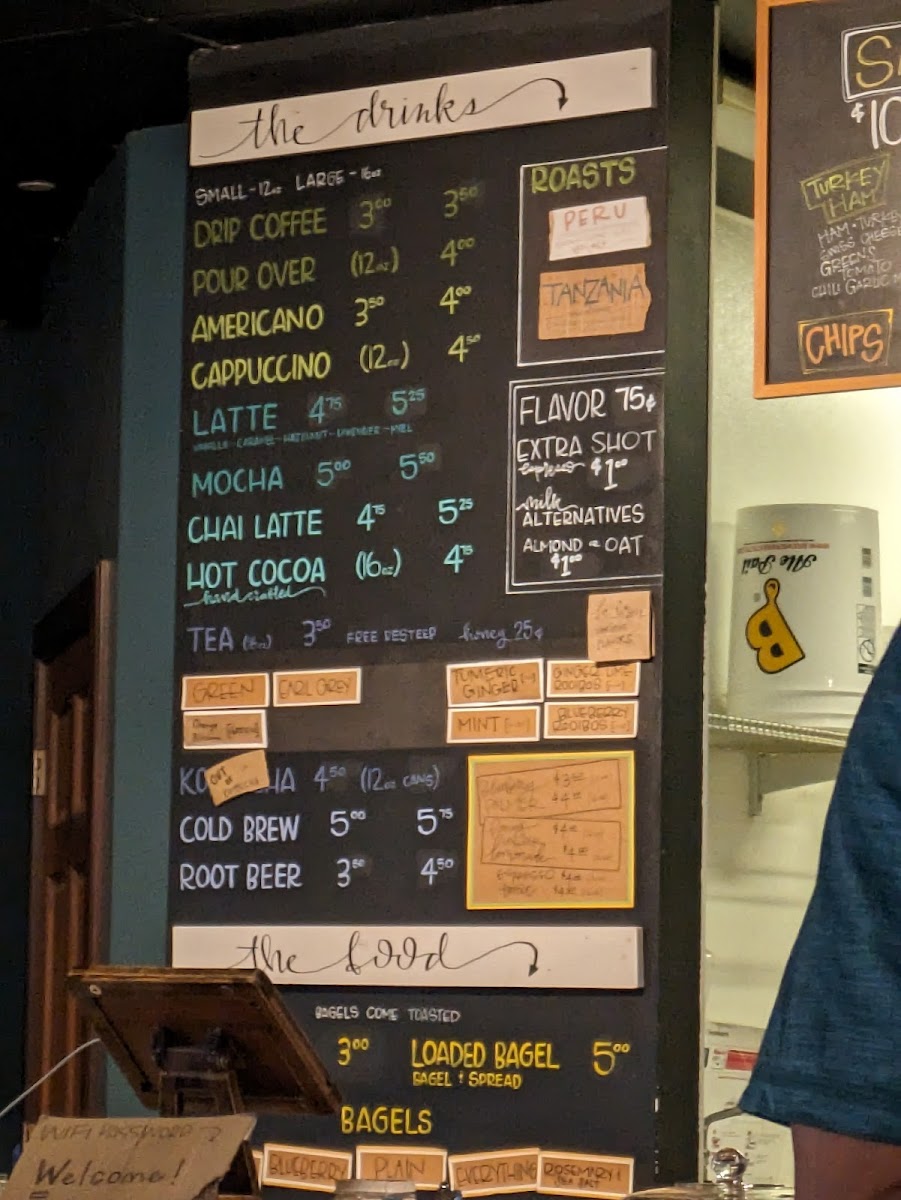 the drinks
SMALL-12oz LARGE-16oz
DRIP COFFEE 3.00 3.50
POUR OVER (12oz) 4.00
AMERICANO 3.50 4.00
CAPPUCCINO (12oz) 4.50
LATTE 4.75 5.25
VANILLA-CARAMEL-HAZELNUT-LAVENDER-MIEL
MOCHA 5.00 5.50
CHAI LATTE 4.75 5.25
HOT COCOA (16oz) 4.75
handcrafted
TEA (16oz) 3.50 FREE RESTEEP honey 25¢
GREEN
EARL GREY
TUMERIC
GINGER
ROOIBOS
MINT
BLUEBERRY
ROOIBOS
OUT OF
4.50 (12oz CANS)
COLD BREW 5.00 5.75
ROOT BEER 3.50 4.50
ROASTS
PERU
TANZANIA
FLAVOR 75¢
EXTRA SHOT
espresso $1.00
milk
ALTERNATIVES
ALMOND or OAT
$1.00
the food
BAGELS COME TOASTED
3.00 LOADED BAGEL 5.00
BAGEL + SPREAD
BAGELS
BLUEBERRY
PLAIN
EVERYTHING
ROSEMARY &
SEA SALT
WIFI PASSWORD
Welcome!
$10
TURKEY
HAM
HAM • TURKEY
GREENS
TOMATO
CHILI GARLIC
CHIPS
Ale Pail
B